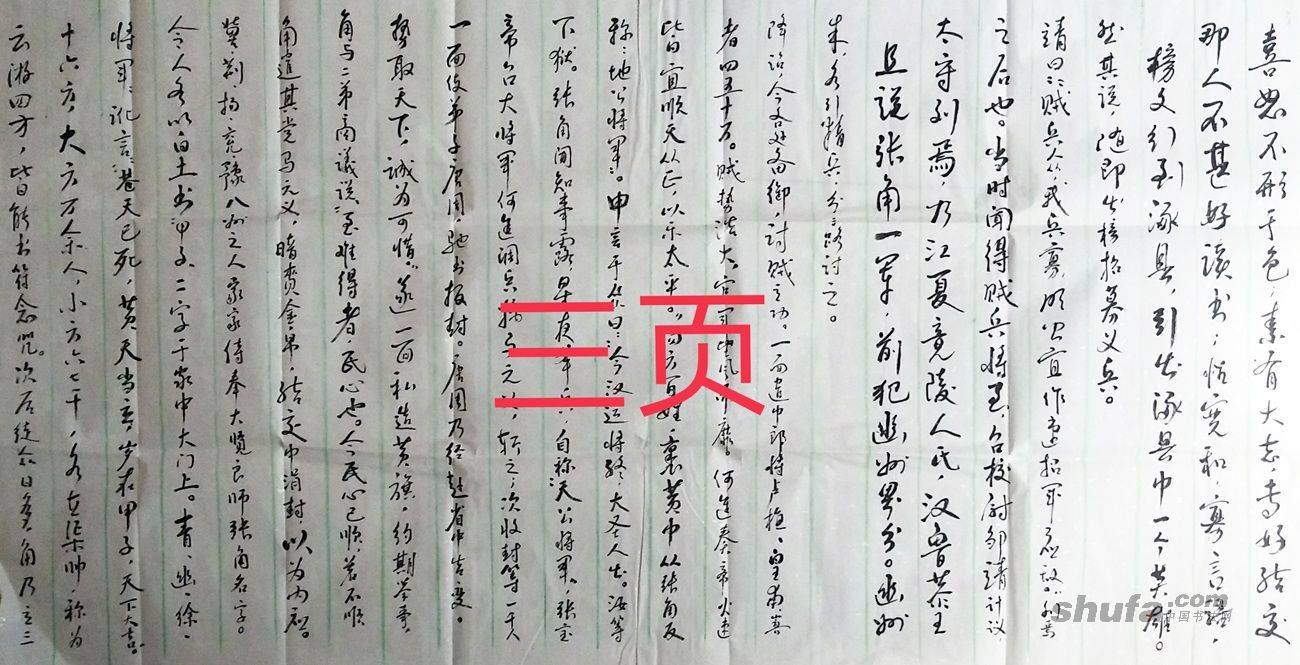 云游四方，皆能书符念咒。次后徒众日多，角乃立三
十六方，大方万余人，小方六七千，各立渠帅，称为
将军；讹言：“苍天已死，黄天当立；岁在甲子，天下大吉。
令人各以白土书“甲子”二字于家中大门上。青、幽、徐、
冀、荆、扬、兖、豫八州之人，家家侍奉大贤良师张角名字。
角遣其党马元义，暗赍金帛，结交中涓封，以为内应。
角与二弟商议说：“至难得者，民心也。今民心已顺，若不顺
势取天下，诚为可惜。”遂一面私造黄旗，约期举事，
一面使弟子唐周，驰书报封。唐周乃径赴省中告变。
帝召大将军何进调兵擒马元义，斩之；次收封等一干人
下狱。张角闻知事露，星夜举兵，自称“天公将军”，张宝
称“地公将军”。申言于众曰：“今汉运将终，大圣人出。汝等
皆宜顺天从正，以乐太平。”四方百姓，裹黄巾从张角反
者四五十万。贼势浩大，官军望风而靡。何进奏帝火速
降诏，令各处备御，讨贼立功。一面遣中郎将卢植、皇甫嵩
朱，各引精兵，分三路讨之。
且说张角一军，前犯幽州界分。幽州
太守刘焉，乃江夏竟陵人氏，汉鲁恭王
之后也。当时闻得贼兵将至，召校尉邹靖计议，
靖曰：“贼兵众，我兵寡，明公宜作速招军应敌。”刘焉
然其说，随即出榜招募义兵。
榜文行到涿县，引出涿县中一个英雄。
那人不甚好读书；性宽和，寡言语，
喜怒不形于色；素有大志，专好结交
三页
shufa.com
中国书法网